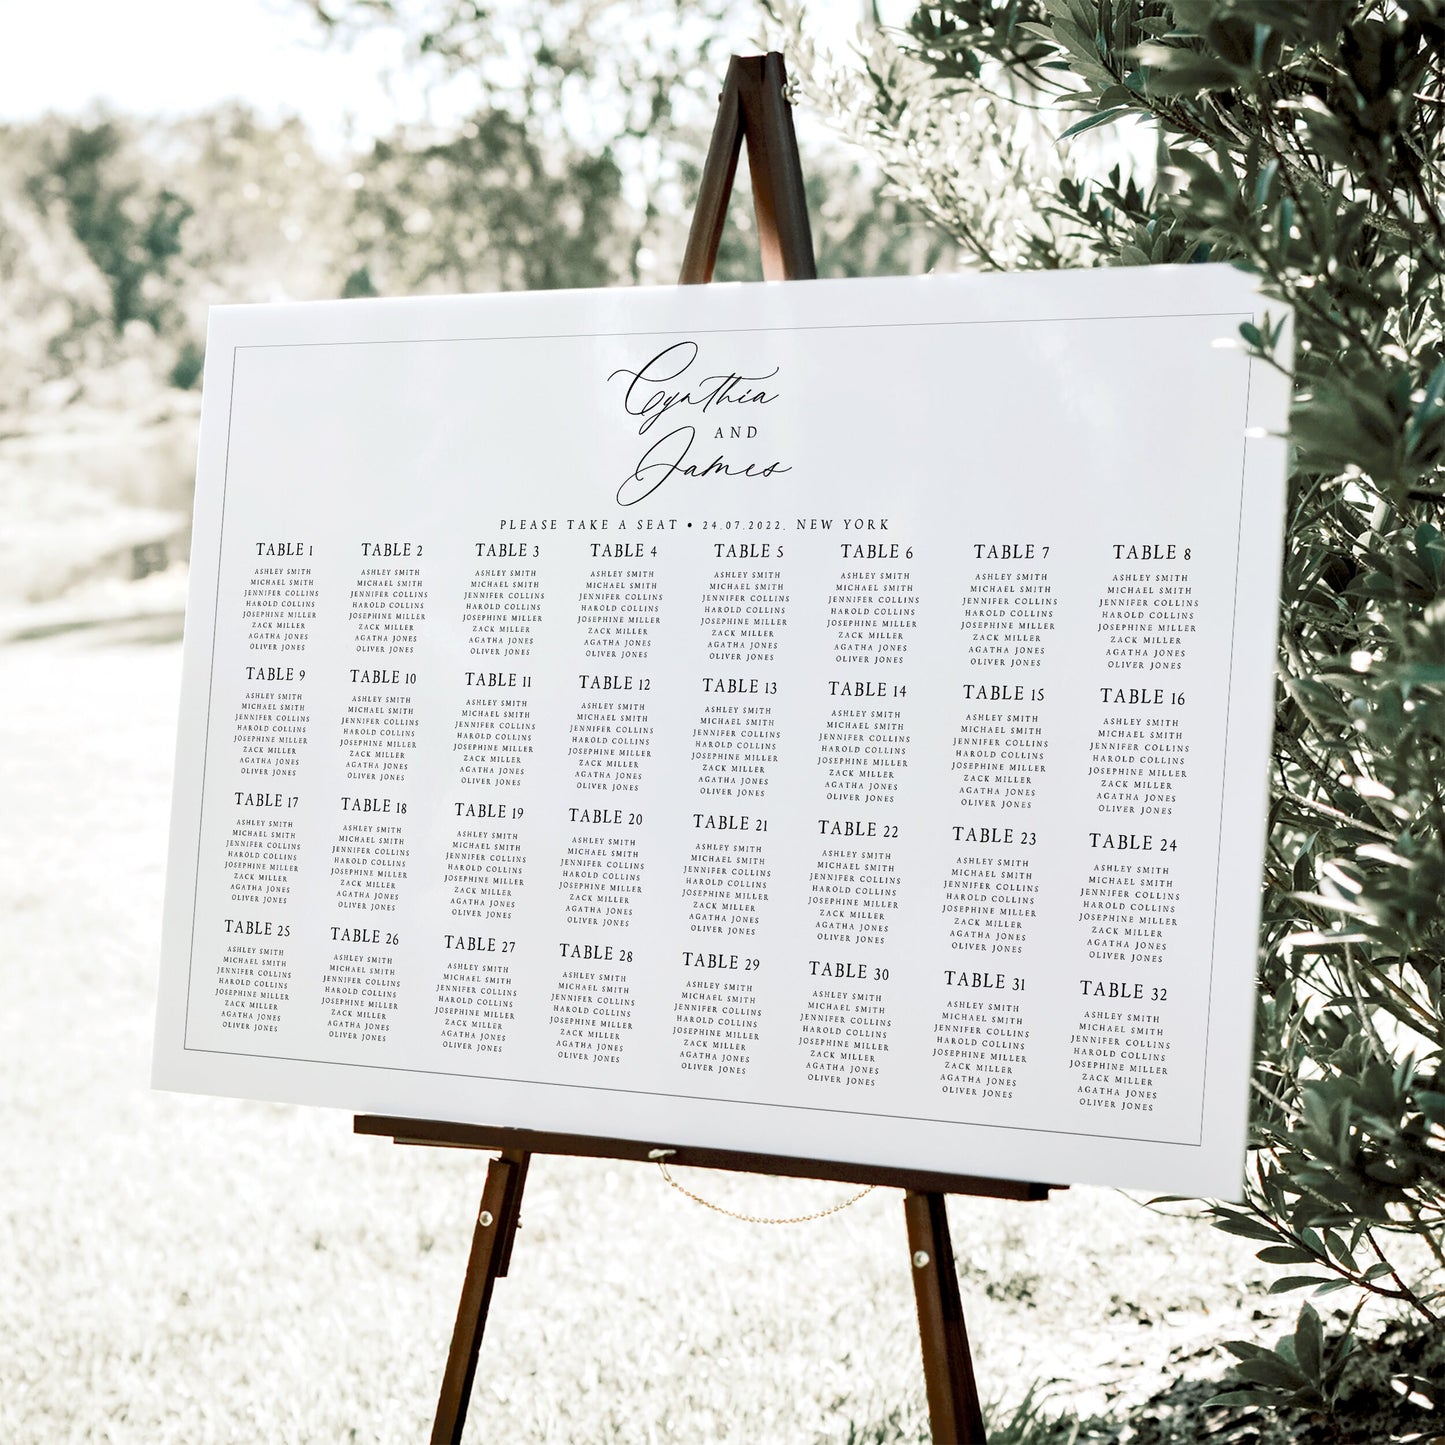 Cynthia
AND
James
PLEASE TAKE A SEAT • 24.07.2022. NEW YORK
TABLE 1
ASHLEY SMITH
MICHAEL SMITH
JENNIFER COLLINS
HAROLD COLLINS
JOSEPHINE MILLER
ZACK MILLER
AGATHA JONES
OLIVER JONES
TABLE 2
ASHLEY SMITH
MICHAEL SMITH
JENNIFER COLLINS
HAROLD COLLINS
JOSEPHINE MILLER
ZACK MILLER
AGATHA JONES
OLIVER JONES
TABLE 3
ASHLEY SMITH
MICHAEL SMITH
JENNIFER COLLINS
HAROLD COLLINS
JOSEPHINE MILLER
ZACK MILLER
AGATHA JONES
OLIVER JONES
TABLE 4
ASHLEY SMITH
MICHAEL SMITH
JENNIFER COLLINS
HAROLD COLLINS
JOSEPHINE MILLER
ZACK MILLER
AGATHA JONES
OLIVER JONES
TABLE 5
ASHLEY SMITH
MICHAEL SMITH
JENNIFER COLLINS
HAROLD COLLINS
JOSEPHINE MILLER
ZACK MILLER
AGATHA JONES
OLIVER JONES
TABLE 6
ASHLEY SMITH
MICHAEL SMITH
JENNIFER COLLINS
HAROLD COLLINS
JOSEPHINE MILLER
ZACK MILLER
AGATHA JONES
OLIVER JONES
TABLE 7
ASHLEY SMITH
MICHAEL SMITH
JENNIFER COLLINS
HAROLD COLLINS
JOSEPHINE MILLER
ZACK MILLER
AGATHA JONES
OLIVER JONES
TABLE 8
ASHLEY SMITH
MICHAEL SMITH
JENNIFER COLLINS
HAROLD COLLINS
JOSEPHINE MILLER
ZACK MILLER
AGATHA JONES
OLIVER JONES
TABLE 9
ASHLEY SMITH
MICHAEL SMITH
JENNIFER COLLINS
HAROLD COLLINS
JOSEPHINE MILLER
ZACK MILLER
AGATHA JONES
OLIVER JONES
TABLE 10
ASHLEY SMITH
MICHAEL SMITH
JENNIFER COLLINS
HAROLD COLLINS
JOSEPHINE MILLER
ZACK MILLER
AGATHA JONES
OLIVER JONES
TABLE 11
ASHLEY SMITH
MICHAEL SMITH
JENNIFER COLLINS
HAROLD COLLINS
JOSEPHINE MILLER
ZACK MILLER
AGATHA JONES
OLIVER JONES
TABLE 12
ASHLEY SMITH
MICHAEL SMITH
JENNIFER COLLINS
HAROLD COLLINS
JOSEPHINE MILLER
ZACK MILLER
AGATHA JONES
OLIVER JONES
TABLE 13
ASHLEY SMITH
MICHAEL SMITH
JENNIFER COLLINS
HAROLD COLLINS
JOSEPHINE MILLER
ZACK MILLER
AGATHA JONES
OLIVER JONES
TABLE 14
ASHLEY SMITH
MICHAEL SMITH
JENNIFER COLLINS
HAROLD COLLINS
JOSEPHINE MILLER
ZACK MILLER
AGATHA JONES
OLIVER JONES
TABLE 15
ASHLEY SMITH
MICHAEL SMITH
JENNIFER COLLINS
HAROLD COLLINS
JOSEPHINE MILLER
ZACK MILLER
AGATHA JONES
OLIVER JONES
TABLE 16
ASHLEY SMITH
MICHAEL SMITH
JENNIFER COLLINS
HAROLD COLLINS
JOSEPHINE MILLER
ZACK MILLER
AGATHA JONES
OLIVER JONES
TABLE 17
ASHLEY SMITH
MICHAEL SMITH
JENNIFER COLLINS
HAROLD COLLINS
JOSEPHINE MILLER
ZACK MILLER
AGATHA JONES
OLIVER JONES
TABLE 18
ASHLEY SMITH
MICHAEL SMITH
JENNIFER COLLINS
HAROLD COLLINS
JOSEPHINE MILLER
ZACK MILLER
AGATHA JONES
OLIVER JONES
TABLE 19
ASHLEY SMITH
MICHAEL SMITH
JENNIFER COLLINS
HAROLD COLLINS
JOSEPHINE MILLER
ZACK MILLER
AGATHA JONES
OLIVER JONES
TABLE 20
ASHLEY SMITH
MICHAEL SMITH
JENNIFER COLLINS
HAROLD COLLINS
JOSEPHINE MILLER
ZACK MILLER
AGATHA JONES
OLIVER JONES
TABLE 21
ASHLEY SMITH
MICHAEL SMITH
JENNIFER COLLINS
HAROLD COLLINS
JOSEPHINE MILLER
ZACK MILLER
AGATHA JONES
OLIVER JONES
TABLE 22
ASHLEY SMITH
MICHAEL SMITH
JENNIFER COLLINS
HAROLD COLLINS
JOSEPHINE MILLER
ZACK MILLER
AGATHA JONES
OLIVER JONES
TABLE 23
ASHLEY SMITH
MICHAEL SMITH
JENNIFER COLLINS
HAROLD COLLINS
JOSEPHINE MILLER
ZACK MILLER
AGATHA JONES
OLIVER JONES
TABLE 24
ASHLEY SMITH
MICHAEL SMITH
JENNIFER COLLINS
HAROLD COLLINS
JOSEPHINE MILLER
ZACK MILLER
AGATHA JONES
OLIVER JONES
TABLE 25
ASHLEY SMITH
MICHAEL SMITH
JENNIFER COLLINS
HAROLD COLLINS
JOSEPHINE MILLER
ZACK MILLER
AGATHA JONES
OLIVER JONES
TABLE 26
ASHLEY SMITH
MICHAEL SMITH
JENNIFER COLLINS
HAROLD COLLINS
JOSEPHINE MILLER
ZACK MILLER
AGATHA JONES
OLIVER JONES
TABLE 27
ASHLEY SMITH
MICHAEL SMITH
JENNIFER COLLINS
HAROLD COLLINS
JOSEPHINE MILLER
ZACK MILLER
AGATHA JONES
OLIVER JONES
TABLE 28
ASHLEY SMITH
MICHAEL SMITH
JENNIFER COLLINS
HAROLD COLLINS
JOSEPHINE MILLER
ZACK MILLER
AGATHA JONES
OLIVER JONES
TABLE 29
ASHLEY SMITH
MICHAEL SMITH
JENNIFER COLLINS
HAROLD COLLINS
JOSEPHINE MILLER
ZACK MILLER
AGATHA JONES
OLIVER JONES
TABLE 30
ASHLEY SMITH
MICHAEL SMITH
JENNIFER COLLINS
HAROLD COLLINS
JOSEPHINE MILLER
ZACK MILLER
AGATHA JONES
OLIVER JONES
TABLE 31
ASHLEY SMITH
MICHAEL SMITH
JENNIFER COLLINS
HAROLD COLLINS
JOSEPHINE MILLER
ZACK MILLER
AGATHA JONES
OLIVER JONES
TABLE 32
ASHLEY SMITH
MICHAEL SMITH
JENNIFER COLLINS
HAROLD COLLINS
JOSEPHINE MILLER
ZACK MILLER
AGATHA JONES
OLIVER JONES